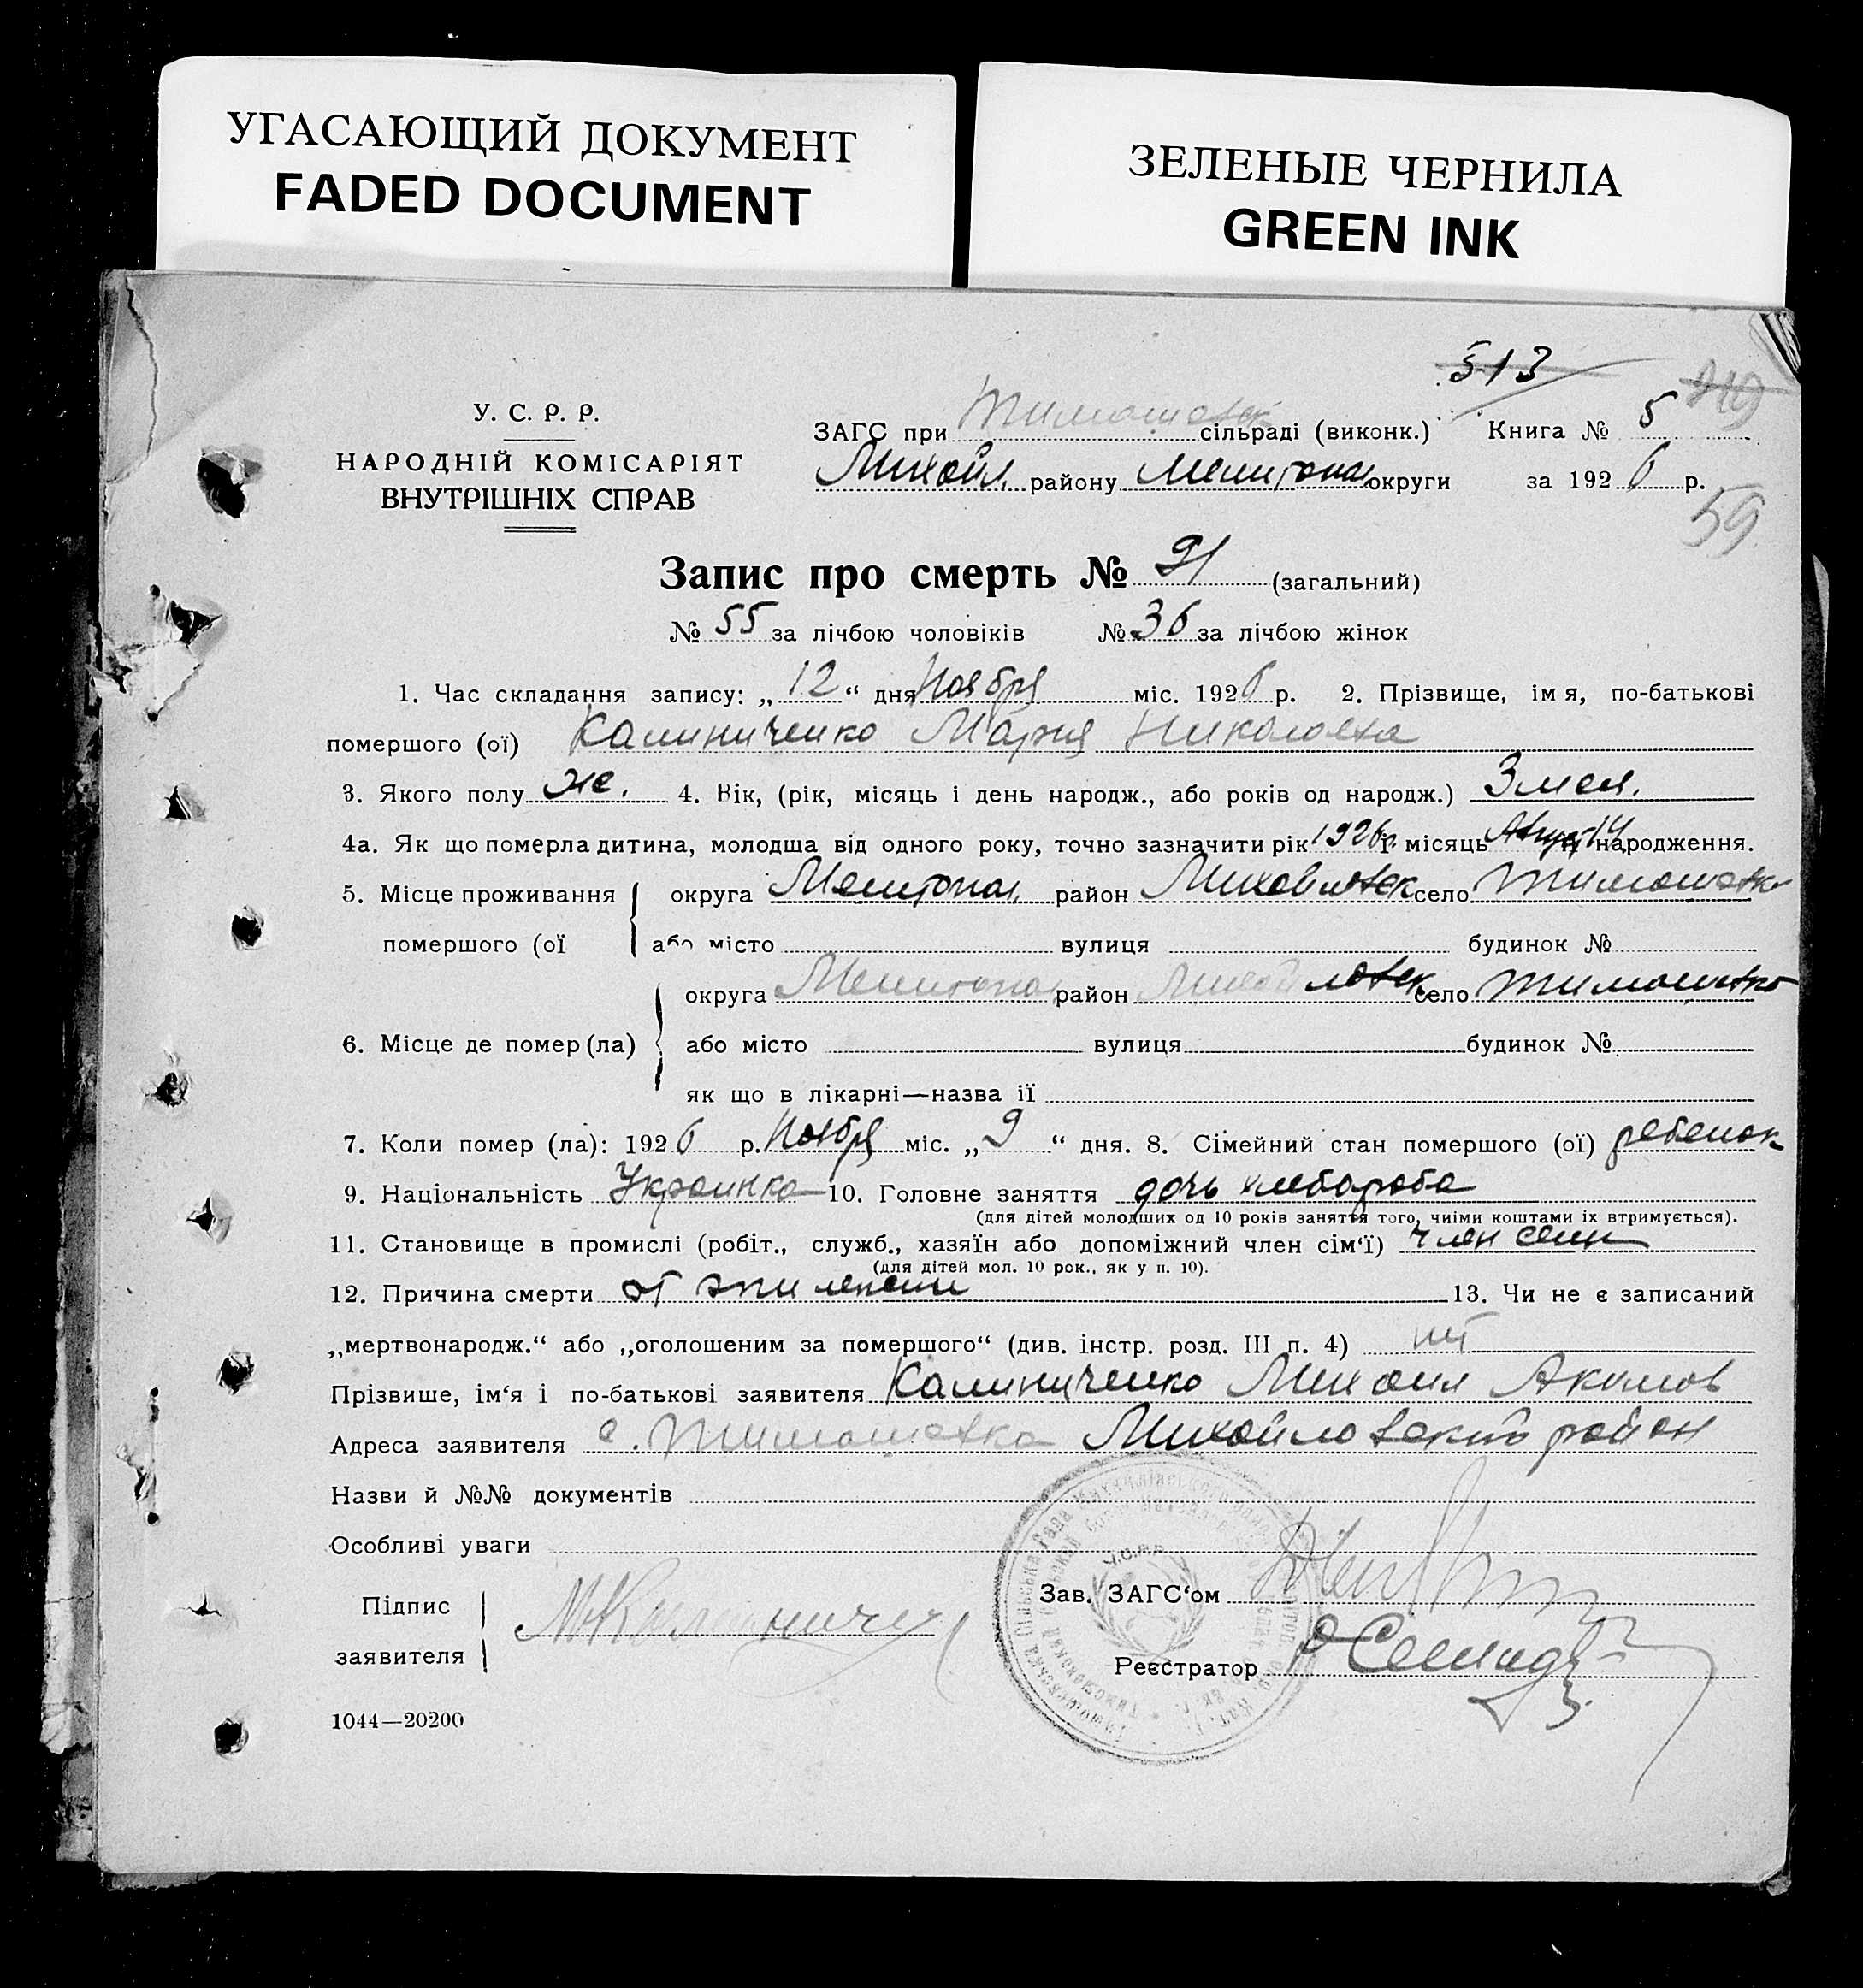 УГАСАЮЩИЙ ДОКУМЕНТ
FADED DOCUMENT
ЗЕЛЕНЫЕ ЧЕРНИЛА
GREEN INK
513
У. С. Р. Р.
НАРОДНІЙ КОМІСАРІЯТ
ВНУТРІШНІХ СПРАВ
ЗАГС при Тимошовск сільраді (виконк.) Книга № 5
Михайл. району Мелитопол округи за 1926 р.
59
Запис про смерть № 91 (загальний)
№ 55 за лічбою чоловіків № 36 за лічбою жінок
1. Час складання запису: „12“ дня Ноября міс. 1926 р. 2. Прізвище, імя, по-батькові
помершого (ої) Калиниченко Мария Николаевна
3. Якого полу же. 4. Вік, (рік, місяць і день народж., або років од народж.) 3 меся.
4а. Як що померла дитина, молодша від одного року, точно зазначити рік 1926 г. місяць Август 14 народження.
5. Місце проживання округа Мелитопол. район Михайловск село Тимошовка
помершого (ої або місто вулиця будинок №
округа Мелитопол район Михайловск село Тимошовка
6. Місце де помер (ла) або місто вулиця будинок №
як що в лікарні—назва її
7. Коли помер (ла): 1926 р. Ноября міс. „9“ дня. 8. Сімейний стан помершого (ої) ребенок
9. Національність Украинка 10. Головне заняття дочь хлебороба
(для дітей молодших од 10 років заняття того, чиїми коштами їх втримується).
11. Становище в промислі (робіт., служб., хазяїн або допоміжний член сім‘ї) член семи
(для дітей мол. 10 рок., як у п. 10).
12. Причина смерти от эпилепсии 13. Чи не є записаний
„мертвонародж.“ або „оголошеним за помершого“ (див. інстр. розд. III п. 4) нет
Прізвише, ім‘я і по-батькові заявителя Калиниченко Михаил Акимов
Адреса заявителя с. Тимошовка Михайловского район
Назви й №№ документів
Особливі уваги
У.С.Р.Р.
Підпис
заявителя
Зав. ЗАГС‘ом
Реєстратор
1044—20200